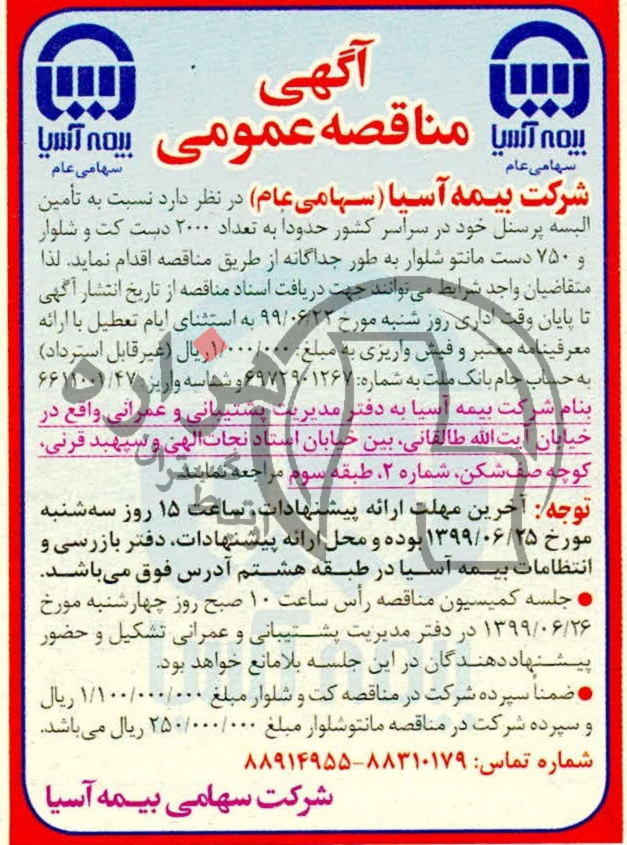 آگهی
مناقصه عمومی
بیمه آسیا
سهامی عام
بیمه آسیا
سهامی عام
شرکت بیمه آسیا (سهامی عام) در نظر دارد نسبت به تأمین
البسه پرسنل خود در سراسر کشور حدوداً به تعداد ۲۰۰۰ دست کت و شلوار
و ۷۵۰ دست مانتو شلوار به طور جداگانه از طریق مناقصه اقدام نماید. لذا
متقاضیان واجد شرایط می‌توانند جهت دریافت اسناد مناقصه از تاریخ انتشار آگهی
تا پایان وقت اداری روز شنبه مورخ ۹۹/۰۶/۲۲ به استثنای ایام تعطیل با ارائه
معرفینامه معتبر و فیش واریزی به مبلغ ۱/۰۰۰/۰۰۰ ریال (غیرقابل استرداد)
به حساب جام بانک ملت به شماره: ۶۹۷۲۹۰۱۲۶۷ و شناسه واریز:
بنام شرکت بیمه آسیا به دفتر مدیریت پشتیبانی و عمرانی واقع در
خیابان آیت‌الله طالقانی، بین خیابان استاد نجات‌الهی و سپهبد قرنی،
کوچه صف‌شکن، شماره ۲، طبقه سوم مراجعه نمایند.
توجه: آخرین مهلت ارائه پیشنهادات، ساعت ۱۵ روز سه‌شنبه
مورخ ۱۳۹۹/۰۶/۲۵ بوده و محل ارائه پیشنهادات، دفتر بازرسی و
انتظامات بیمه آسیا در طبقه هشتم آدرس فوق می‌باشد.
● جلسه کمیسیون مناقصه رأس ساعت ۱۰ صبح روز چهارشنبه مورخ
۱۳۹۹/۰۶/۲۶ در دفتر مدیریت پشتیبانی و عمرانی تشکیل و حضور
پیشنهاددهندگان در این جلسه بلامانع خواهد بود.
● ضمناً سپرده شرکت در مناقصه کت و شلوار مبلغ ۱/۱۰۰/۰۰۰/۰۰۰ ریال
و سپرده شرکت در مناقصه مانتوشلوار مبلغ ۲۵۰/۰۰۰/۰۰۰ ریال می‌باشد.
شماره تماس: ۸۸۳۱۰۱۷۹-۸۸۹۱۴۹۵۵
شرکت سهامی بیمه آسیا